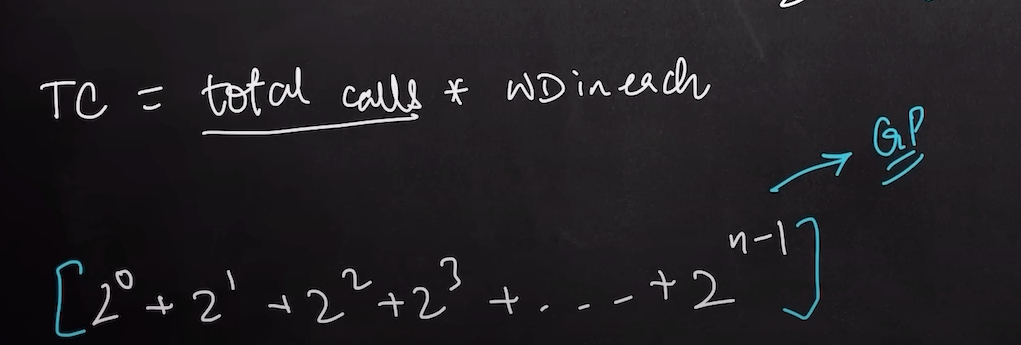 TC = total calls * WD in each
GP
[2⁰ + 2¹ + 2² + 2³ + . - - - + 2ⁿ⁻¹]